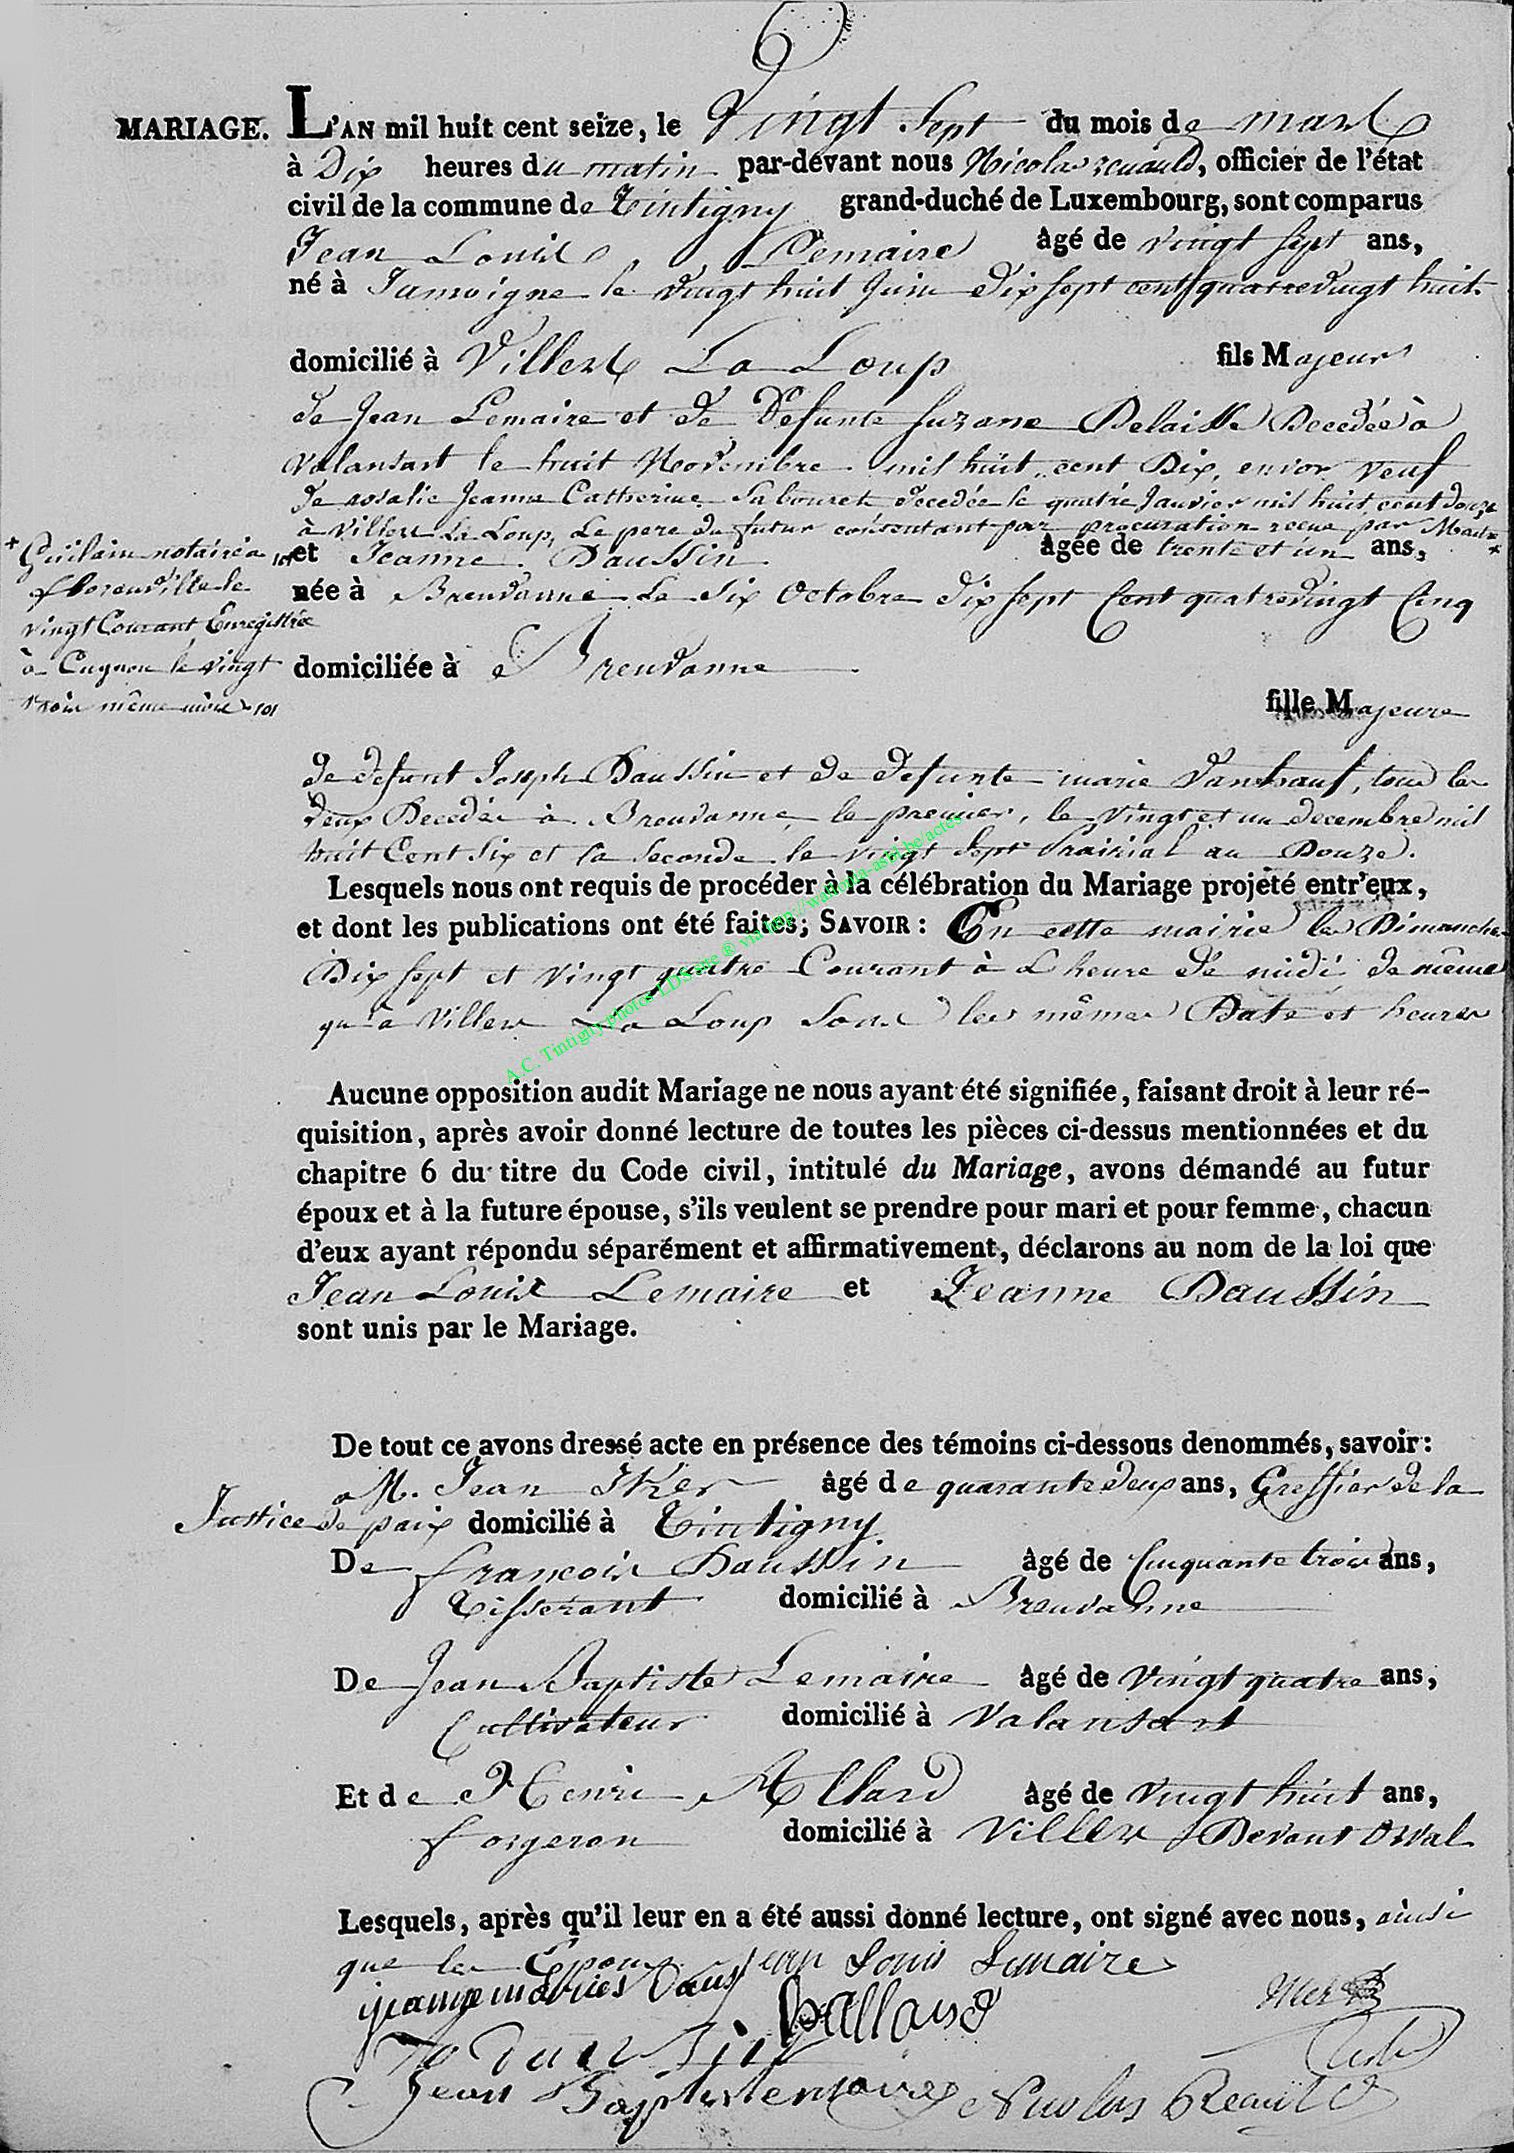 6
MARIAGE. L'AN mil huit cent seize, le Vingt Sept du mois de mars
à Dix heures du matin par-devant nous Nicolas renauld, officier de l'état
civil de la commune de Tintigny grand-duché de Luxembourg, sont comparus
Jean Louis Lemaire âgé de vingt sept ans,
né à Jamoigne le vingt huit Juin dix sept cent quatrevingt huit
domicilié à Villers La Loup fils Majeur
de Jean Lemaire et de Defunte Suzane Delaisse Decedée à
Valansart le huit Novembre mil huit cent Dix, veuf
de rosalie Jeanne Catherine decedée le quatre Janvier mil huit cent douze
à Villers La Loup, Le pere du futur consentant par procuration recue par
+ Guilain notaire à
florenville le
vingt Courant Enregistrée
à Cugnon le vingt
trois même mois
et Jeanne Daussin âgée de trente et un ans,
née à Breuvanne Le Six Octobre Dix sept Cent quatrevingt Cinq
domiciliée à Breuvanne
fille Majeure
de defunt Joseph Daussin et de defunte marie tous les
deux Decedés à Breuvanne, le premier, le Vingt et un decembre mil
huit Cent Six et la Seconde le vingt Sept Prairial an Douze.
Lesquels nous ont requis de procéder à la célébration du Mariage projeté entr'eux,
et dont les publications ont été faites; SAVOIR : En cette mairie les Dimanches
Dix sept et Vingt quatre Courant à L heure de midi de même
qu'à Villers La Loup Sous les mêmes Date et heures
A.C. Tintigny photos LDS site ® via http://wallonia-asbl.be/actes
Aucune opposition audit Mariage ne nous ayant été signifiée, faisant droit à leur ré-
quisition, après avoir donné lecture de toutes les pièces ci-dessus mentionnées et du
chapitre 6 du titre du Code civil, intitulé du Mariage, avons démandé au futur
époux et à la future épouse, s'ils veulent se prendre pour mari et pour femme, chacun
d'eux ayant répondu séparément et affirmativement, déclarons au nom de la loi que
Jean Louis Lemaire et Jeanne Daussin
sont unis par le Mariage.
De tout ce avons dressé acte en présence des témoins ci-dessous denommés, savoir:
M. Jean Iker âgé de quarante deux ans, Greffier de la
Justice de paix domicilié à Tintigny
De francois Daussin âgé de Cinquante trois ans,
Tisserant domicilié à Breuvanne
De Jean Baptiste Lemaire âgé de Vingt quatre ans,
Cultivateur domicilié à Valansart
Et de Henri Allard âgé de vingt huit ans,
forgeron domicilié à Villers Devant Orval
Lesquels, après qu'il leur en a été aussi donné lecture, ont signé avec nous, ainsi
que les Epoux. jean Louis Lemaire
hallard
Jean Baptiste lemaire Nicolas Renauld